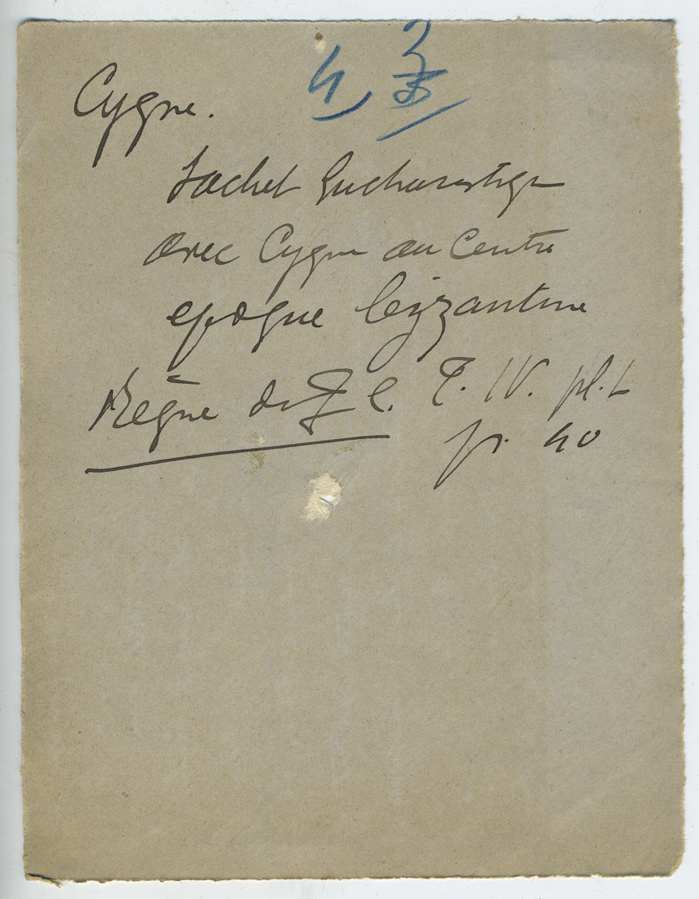 Cygne.
Sachet Eucharistique
avec Cygne au Centre
epoque byzantine
Règne de J. C. T. IV. pl. L
p. 40